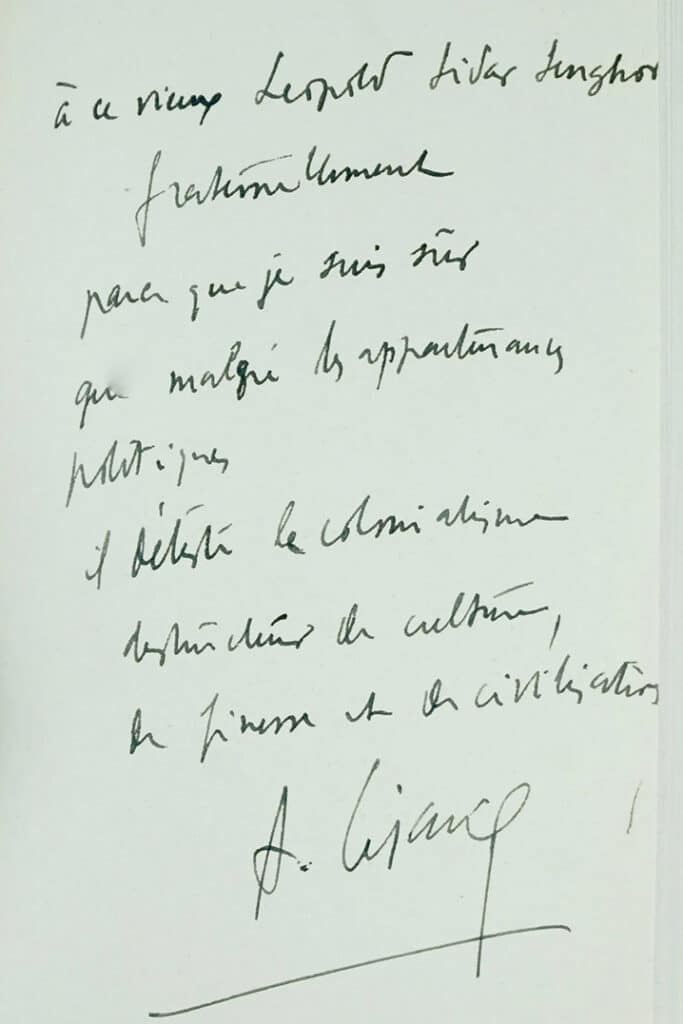 à ce vieux Leopold Sidar Senghor
fraternellement
parce que je suis sûr
que malgré les appartenances
politiques
il déteste le colonialisme
destructeur de culture,
de finesse et de civilisation
A. Césaire